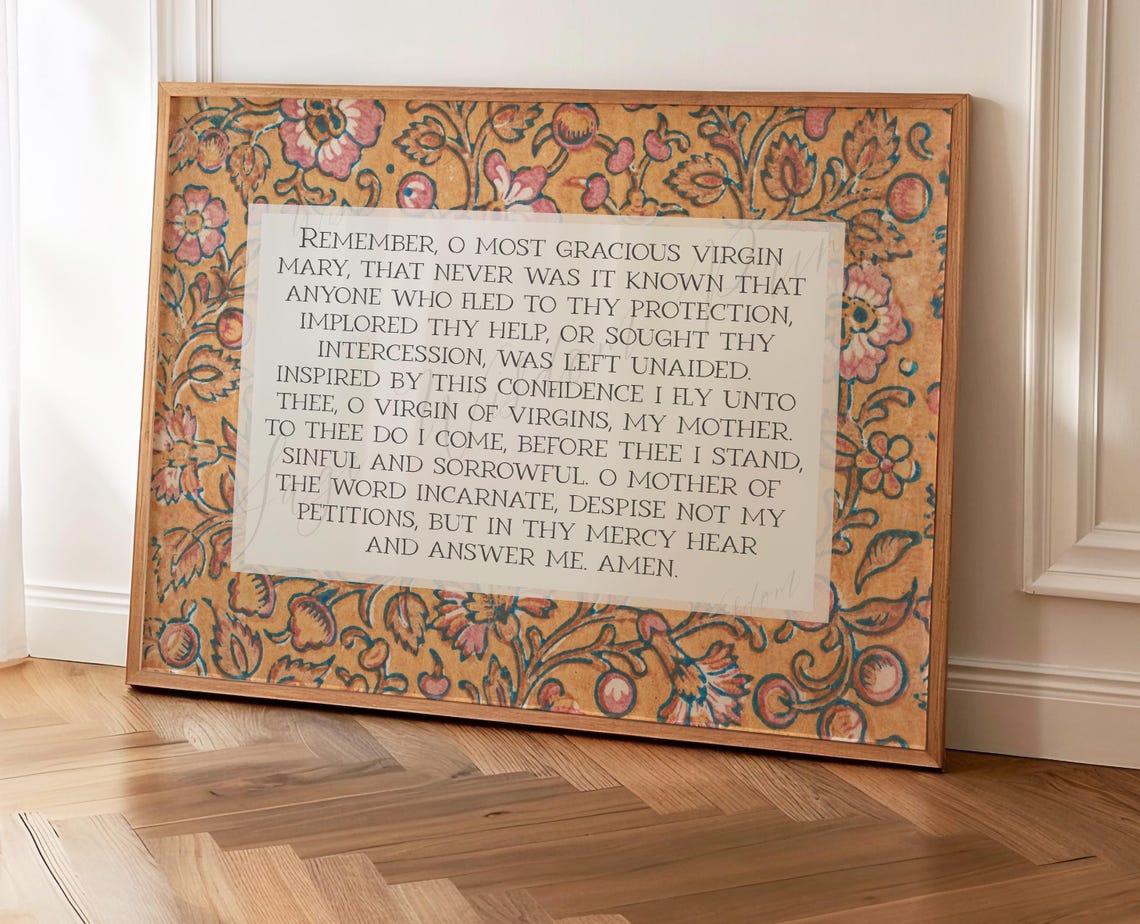 Remember, o most gracious virgin
mary, that never was it known that
anyone who fled to thy protection,
implored thy help, or sought thy
intercession, was left unaided.
inspired by this confidence i fly unto
thee, o virgin of virgins, my mother.
to thee do i come, before thee i stand,
sinful and sorrowful. o mother of
the word incarnate, despise not my
petitions, but in thy mercy hear
and answer me. amen.